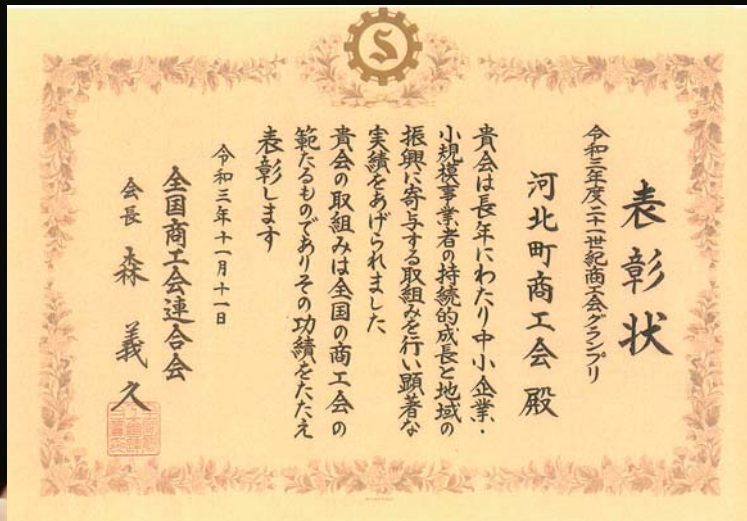 表彰状
令和三年度二十一世紀商工会グランプリ
河北町商工会殿
貴会は長年にわたり中小企業・
小規模事業者の持続的成長と地域の
振興に寄与する取組みを行い顕著な
実績をあげられました
貴会の取組みは全国の商工会の
範たるものでありその功績をたたえ
表彰します
令和三年十一月十一日
全国商工会連合会
会長 森 義久